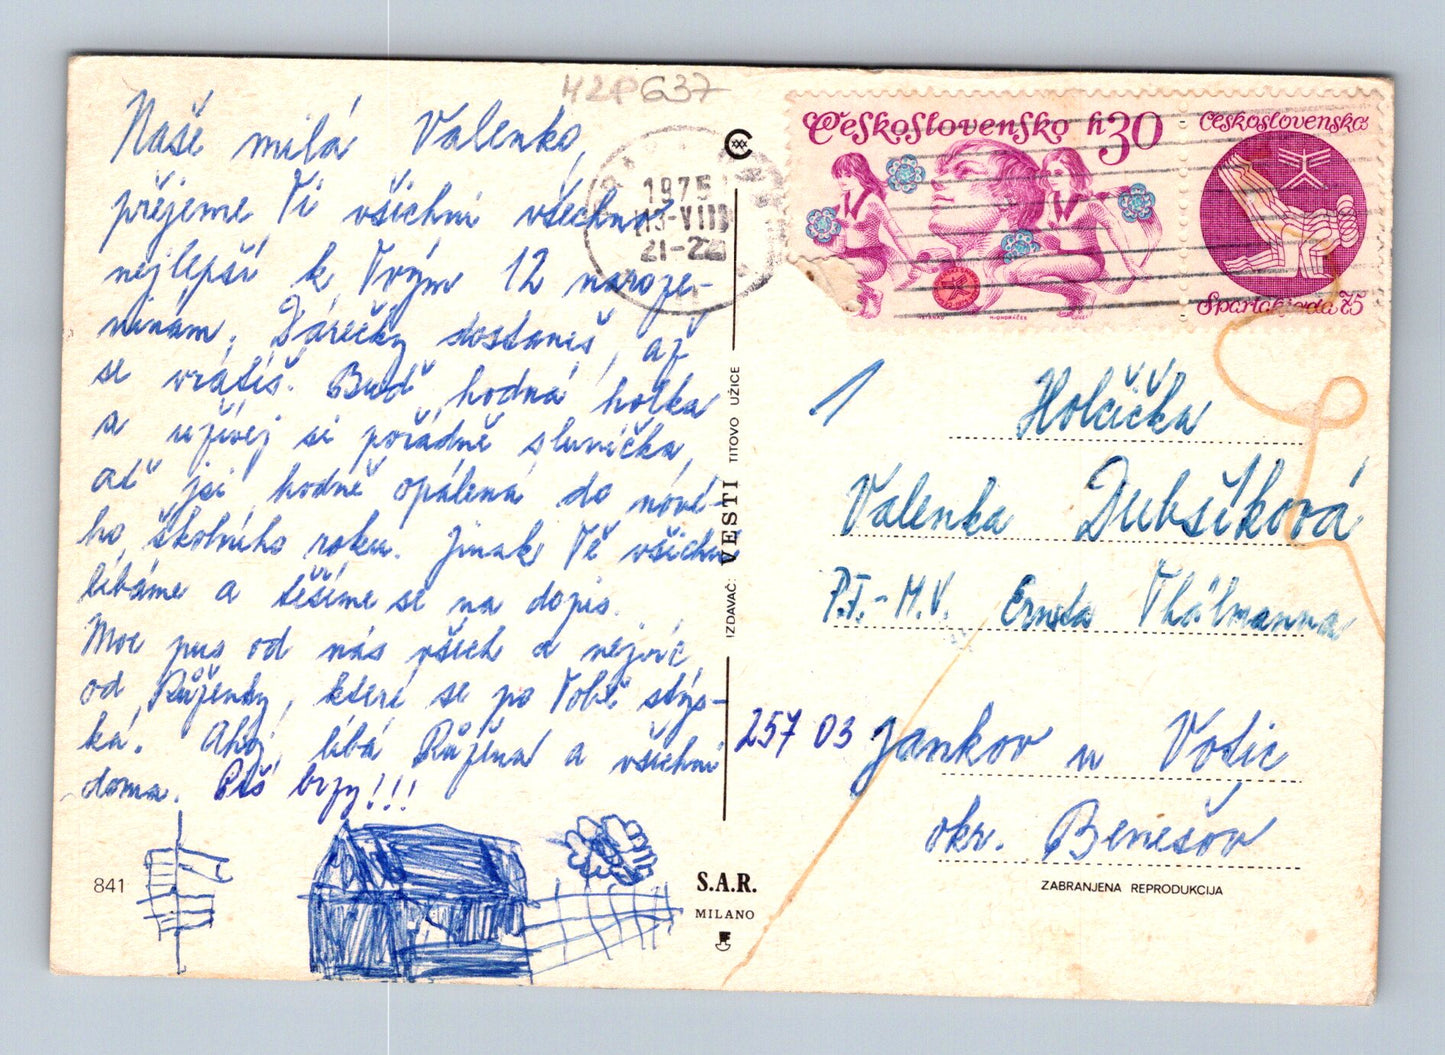 42PG37
Naše milá Valenko,
přejeme Ti všichni všechno
nejlepší k Tvým 12 naroze-
ninám. Dárečky dostaneš, až
se vrátíš. Buď hodná holka
a užívej si pořádně sluníčka,
ať jsi hodně opálená do nové-
ho školního roku. Jinak Tě všichni
líbáme a těšíme se na dopis.
Moc pus od nás všech a nejvíc
od Růženky, které se po Tobě stýs-
ká. Ahoj, líbá Růžena a všichni
doma. Piš brzy!!!
841
IZDAVAČ: VESTI TITOVO UŽICE
S.A.R.
MILANO
1975
13-VIII
21-22
Československo h 30
Československo
Spartakiáda 75
Holčička
Valenka Dubšíková
P.T.-M.V. Ernsta Thälmanna
257 03 Jankov u Votic
okr. Benešov
ZABRANJENA REPRODUKCIJA